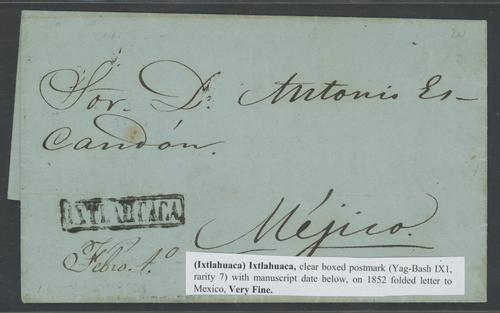 Sor. D. Antonio Es-
candón.
IXTLAHUACA
Méjico.
Febro. 1.º
(Ixtlahuaca) Ixtlahuaca, clear boxed postmark (Yag-Bash IX1,
rarity 7) with manuscript date below, on 1852 folded letter to
Mexico, Very Fine.